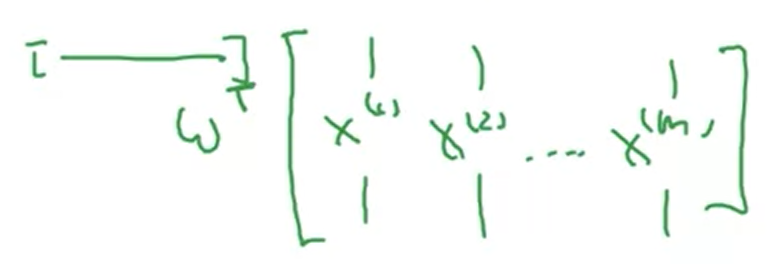 [ —— ] ω^T [ x^(1) x^(2) .... x^(m) ]